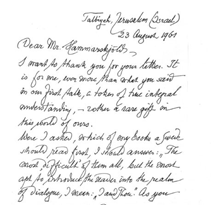 Talbiyeh, Jerusalem (Israel)
23 August 1961
Dear Mr. Hammarskjöld,
I want to thank you for your letter. It
is for me, even more than what you said
in our first talk, a token of true integral
understanding, – rather a rare gift in
this world of ours.
Were I asked, which of my books a Swede
should read first, I should answer: "The
most difficult of them all, but the most
apt to introduce the reader into the realm
of dialogue, I mean: „I and Thou“. As you